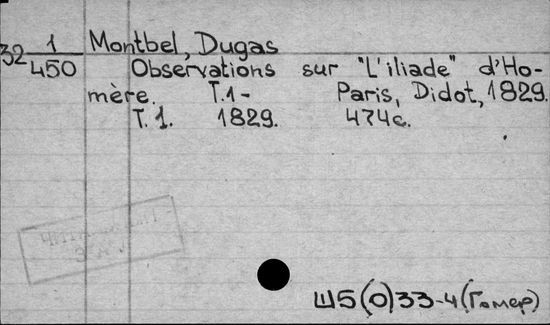 32 1/450 Montbel, Dugas
Observations sur "L'iliade" d'Ho-
mère. T.1- Paris, Didot, 1829.
T. 1. 1829. 474c.
Ш5(0)33-4(Гомер)